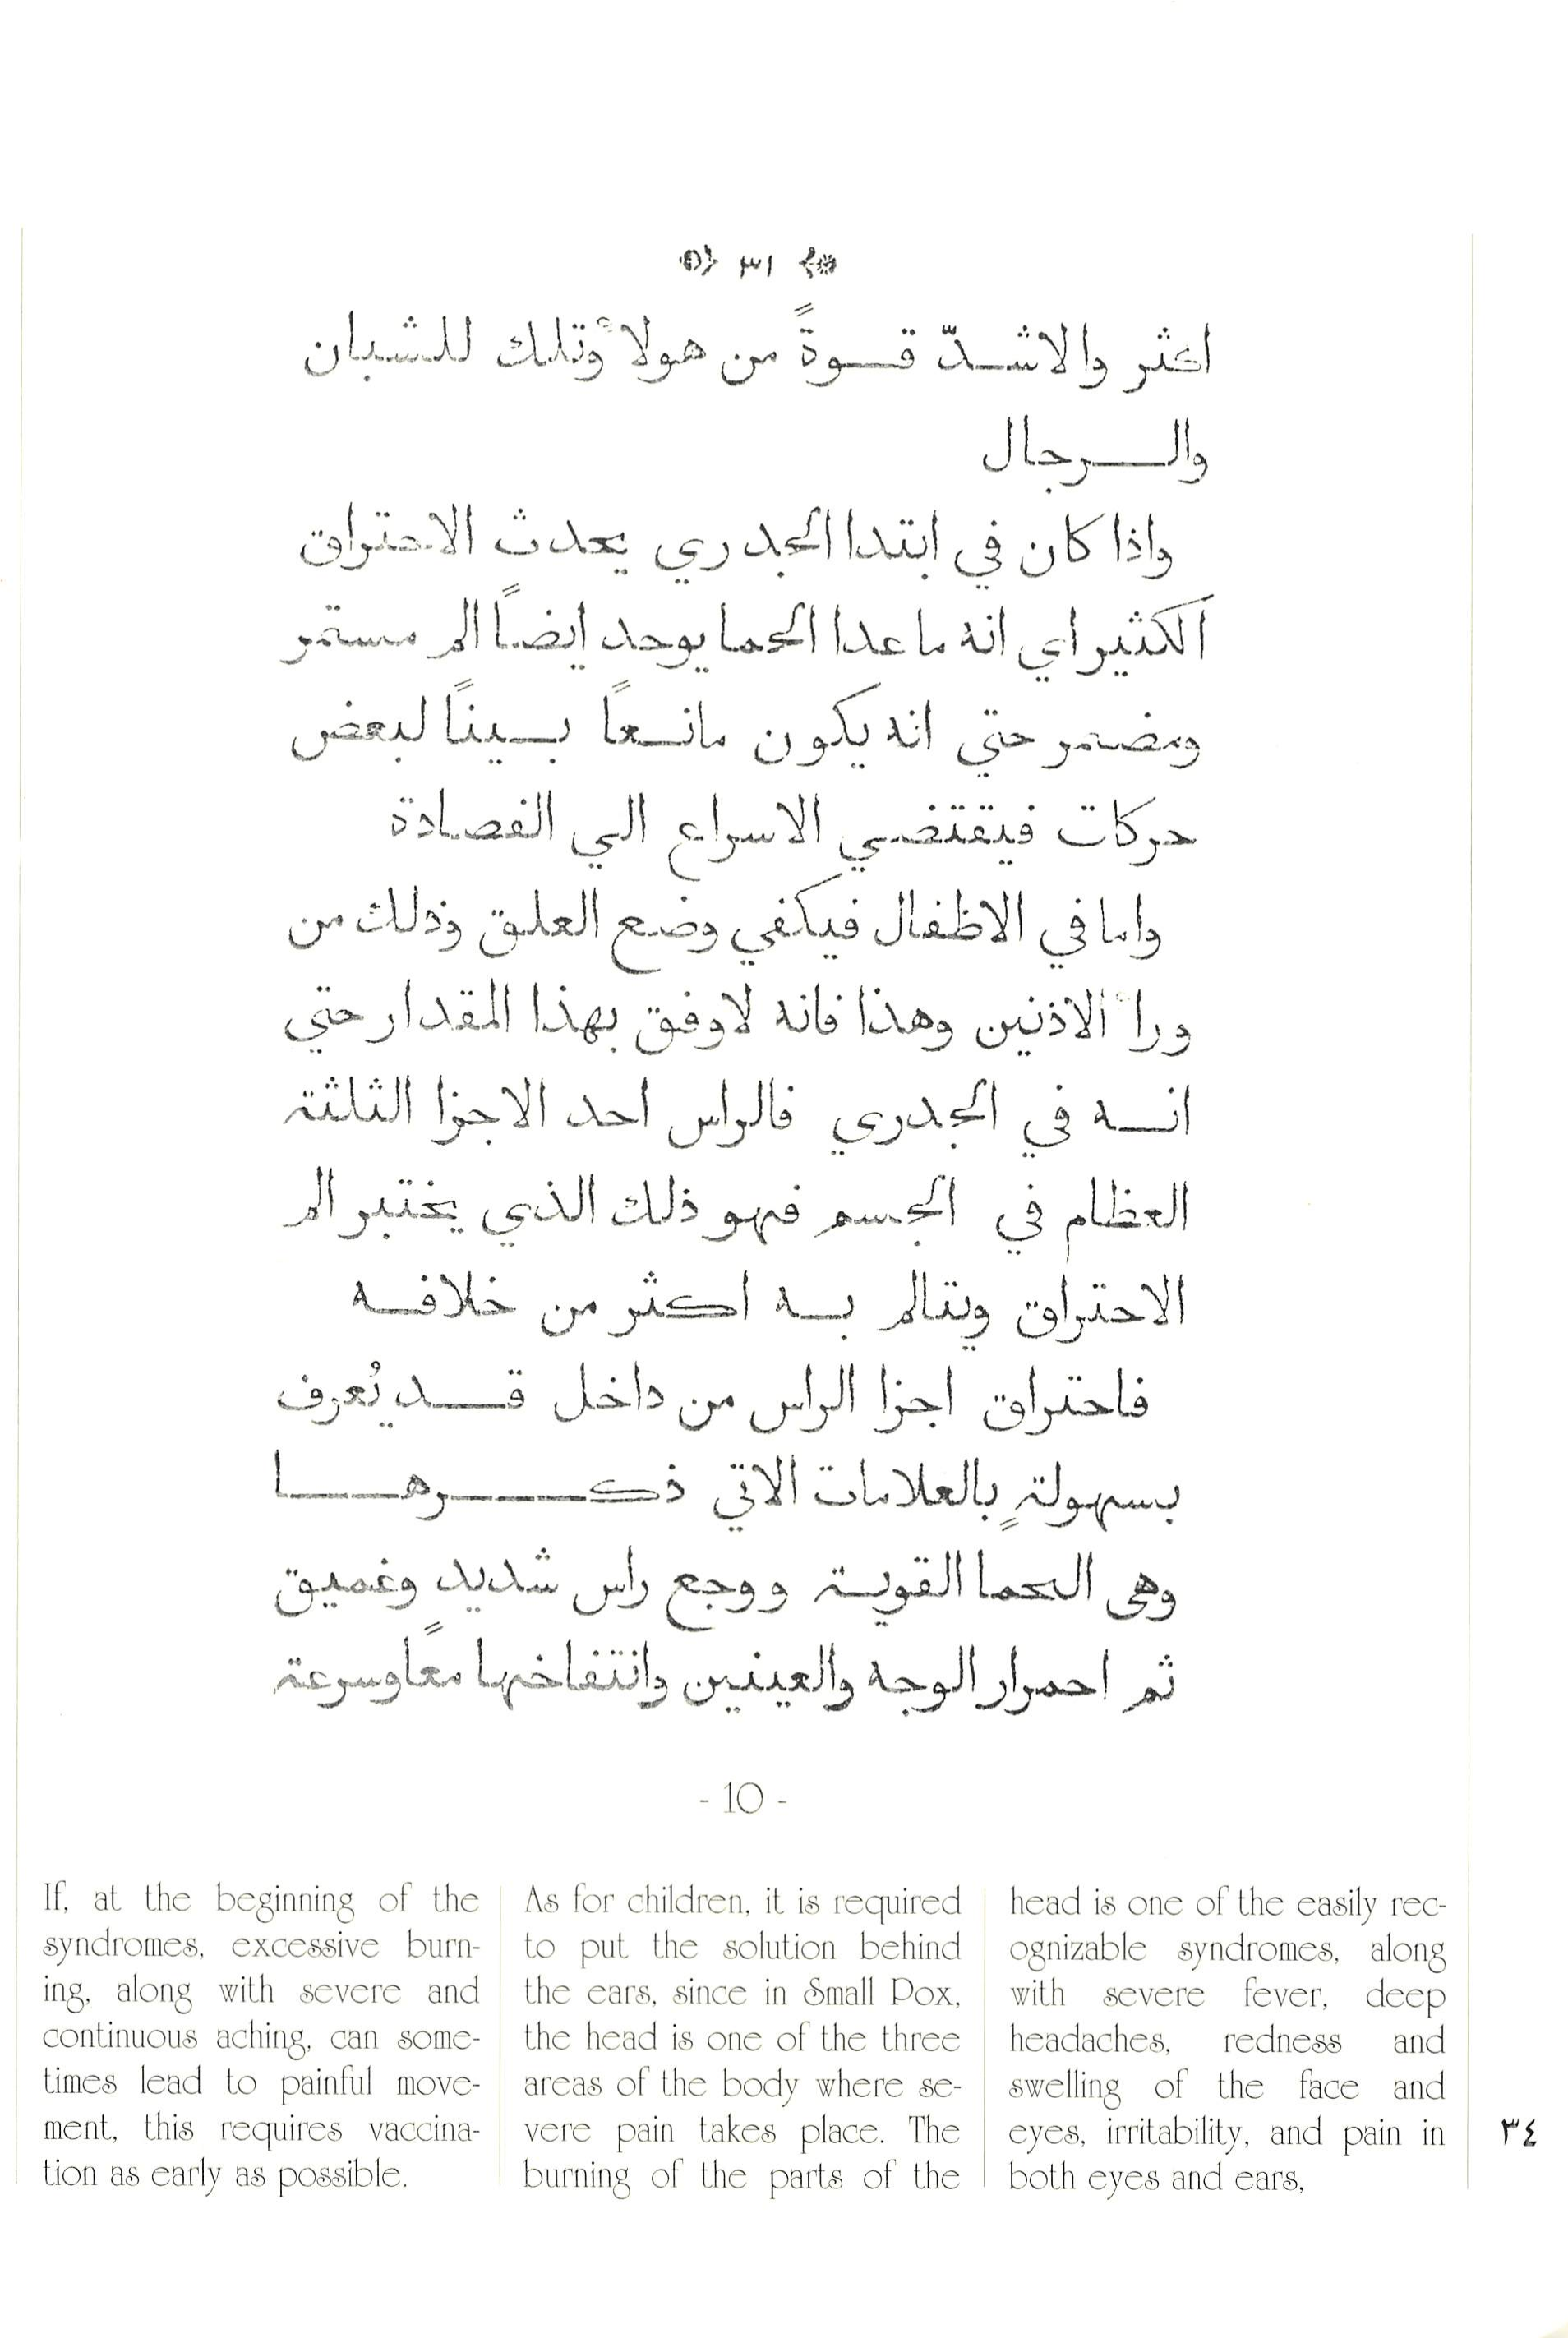 ٣١
اكثر والاشدّ قوةً من هولاء وتلك للشبان
والرجال
واذا كان في ابتدا الجدري يحدث الاحتراق
الكثير اي انه ما عدا الحما يوجد ايضاً الم مستمر
ومضمر حتي انه يكون مانعاً بيناً لبعض
حركات فيقتضي الاسراع الي الفصادة
واما في الاطفال فيكفي وضع العلق وذلك من
وراء الاذنين وهذا فانه لاوفق بهذا المقدار حتي
انه في الجدري فالراس احد الاجزا الثلثة
العظام في الجسم فهو ذلك الذي يختبر الم
الاحتراق ويتالم به اكثر من خلافه
فاحتراق اجزا الراس من داخل قد يُعرف
بسهولةٍ بالعلامات الاتي ذكرها
وهى الحما القوية ووجع راس شديد وغميق
ثم احمرار الوجه والعينين وانتفاخها معاً وسرعة
- 10 -
If, at the beginning of the
syndromes, excessive burn-
ing, along with severe and
continuous aching, can some-
times lead to painful move-
ment, this requires vaccina-
tion as early as possible.
As for children, it is required
to put the solution behind
the ears, since in Small Pox,
the head is one of the three
areas of the body where se-
vere pain takes place. The
burning of the parts of the
head is one of the easily rec-
ognizable syndromes, along
with severe fever, deep
headaches, redness and
swelling of the face and
eyes, irritability, and pain in
both eyes and ears,
٣٤